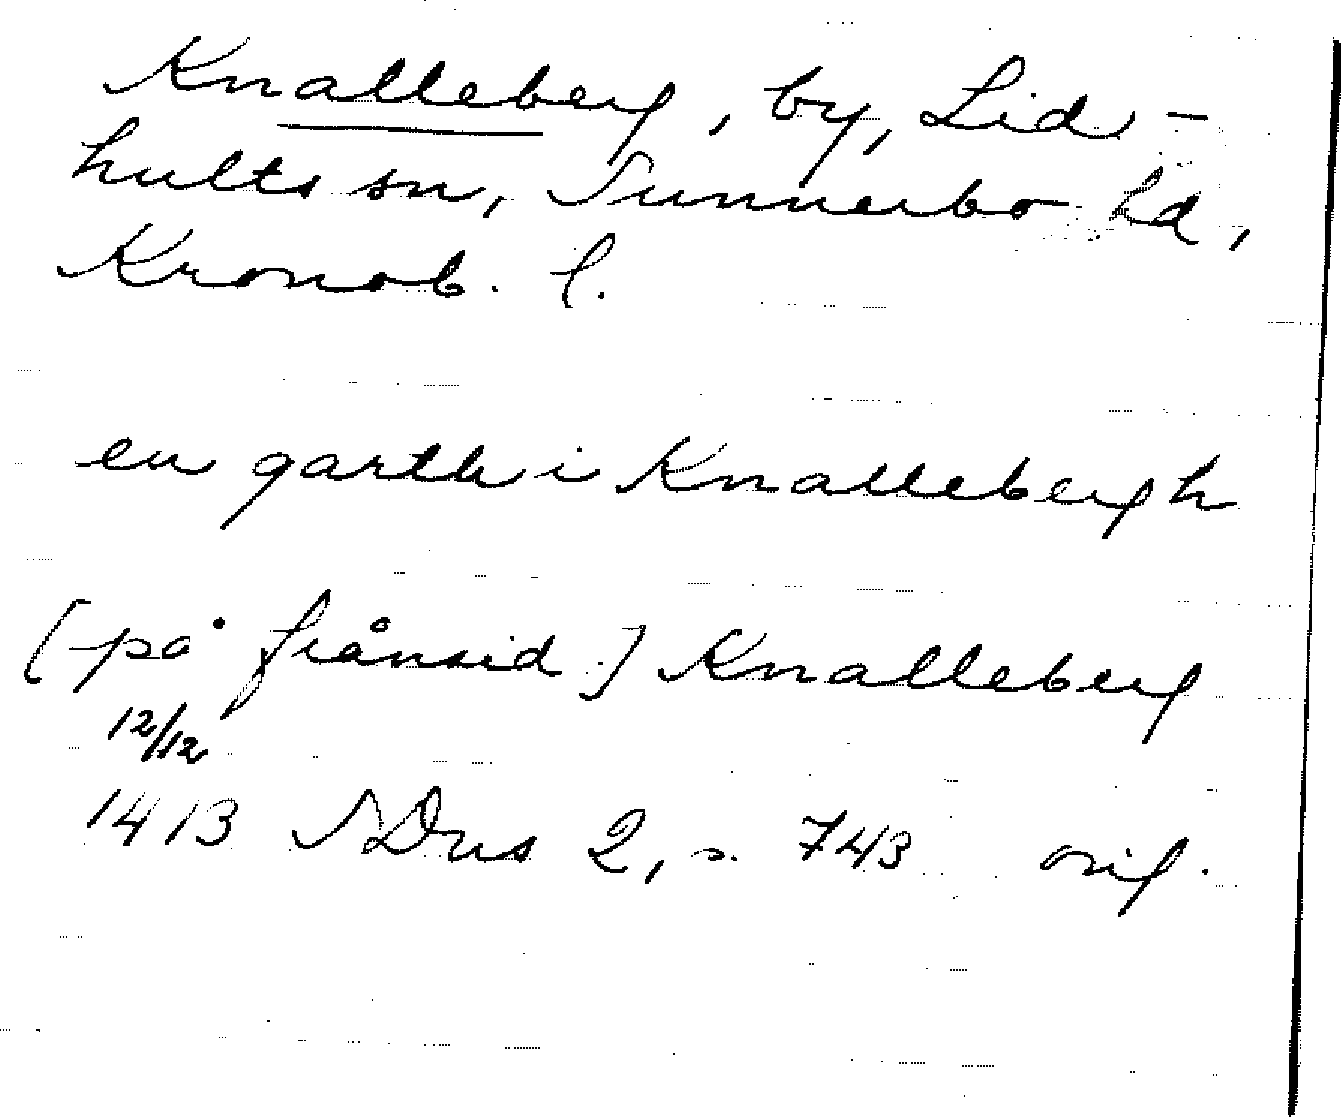 Knalleberg, by, Lid-
hults sn, Sunnerbo hd,
Kronob. l.
en garth i Knallebergh
[på frånsid.] Knalleberg
12/12
1413 SDns 2, s. 743 orig.